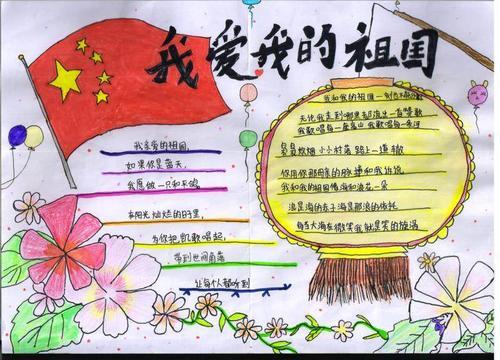 我爱我的祖国
我亲爱的祖国,
如果你是蓝天,
我愿做一只和平鸽,
在阳光灿烂的日子里,
为你把凯歌唱起,
带到世间角落
让每个人都听到
我和我的祖国一刻也不能分割
无论我走到哪里都流出一首赞歌
我歌唱每一座高山 我歌唱每一条河
袅袅炊烟 小小村落 路上一道辙
你用你那母亲的脉搏和我诉说
我和我的祖国像海和浪花一朵
浪是海的赤子海是那浪的依托
每当大海在微笑我就是笑的旋涡